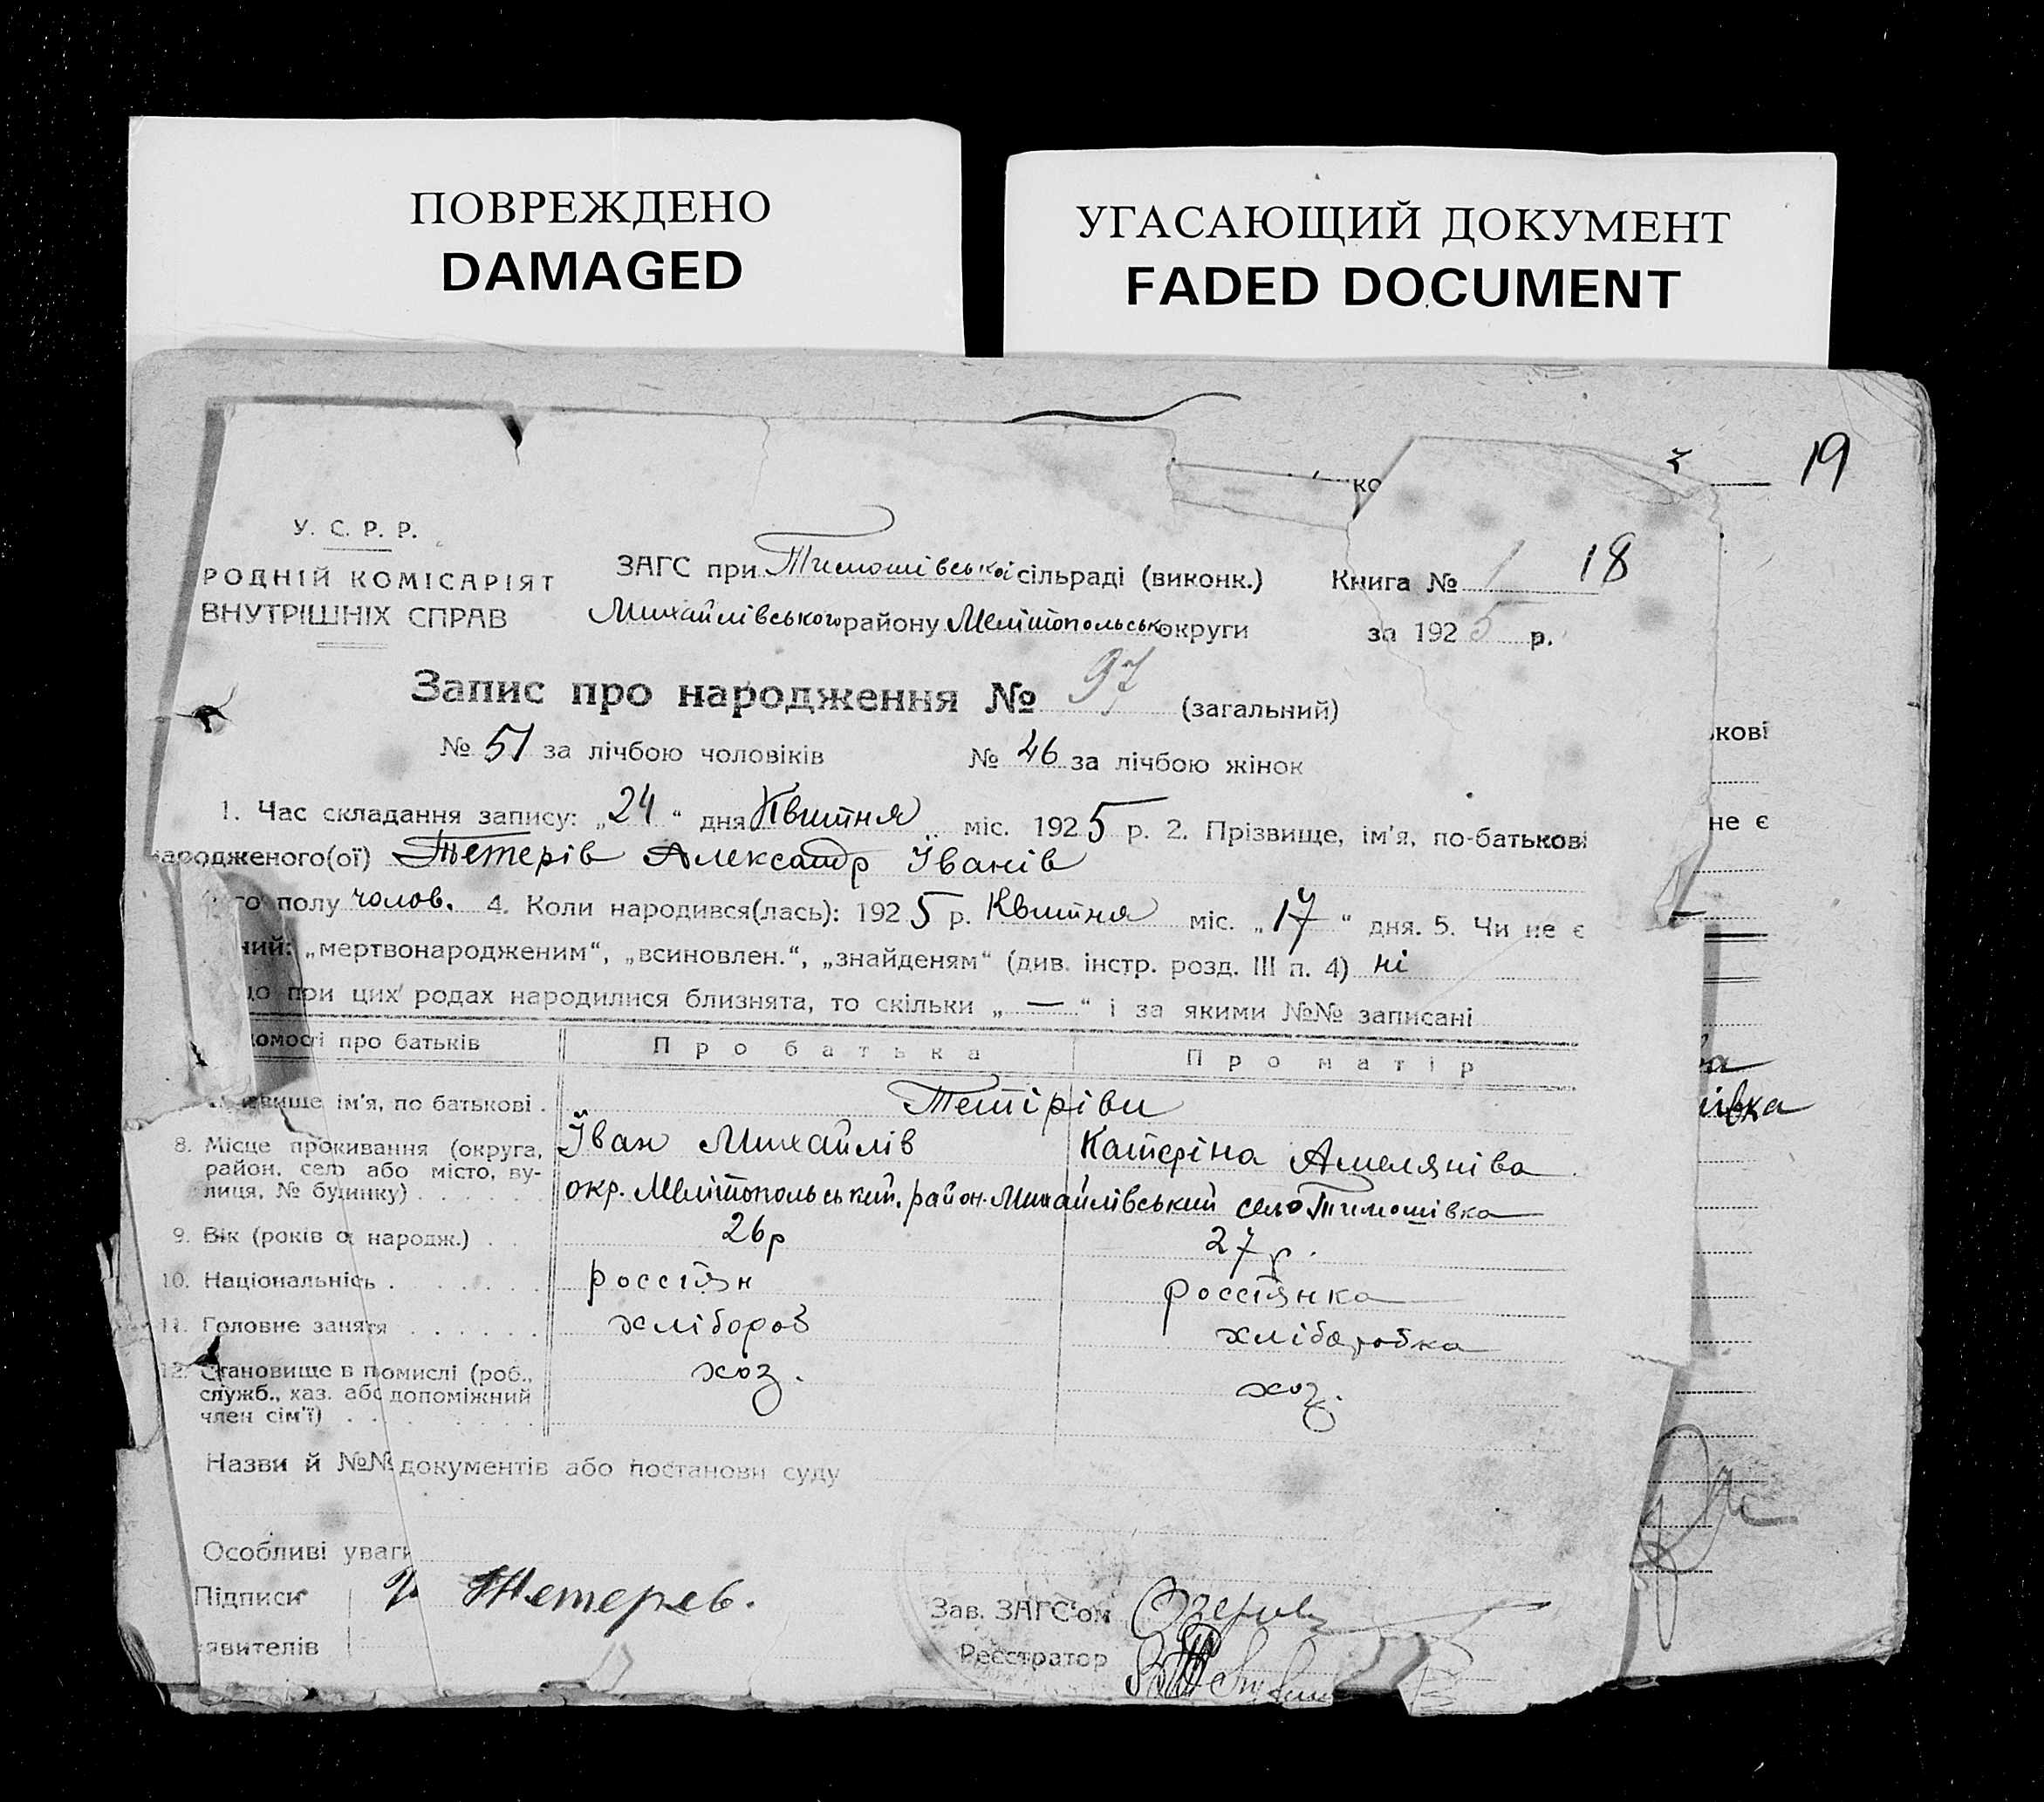 ПОВРЕЖДЕНО
DAMAGED
УГАСАЮЩИЙ ДОКУМЕНТ
FADED DOCUMENT
19
18
У. С. Р. Р.
РОДНІЙ КОМІСАРІЯТ
ВНУТРІШНІХ СПРАВ
ЗАГС при Тимошівській сільраді (виконк.)
Михайлівського району Мелітопольськ округи
Книга № 1
за 1925 р.
Запис про народження № 97 (загальний)
№ 51 за лічбою чоловіків № 46 за лічбою жінок
1. Час складання запису: „24“ дня Квітня міс. 1925 р. 2. Прізвище, ім'я, по-батькові
народженого(ої) Тетерів Александр Іванів
го полу чолов. 4. Коли народився(лась): 1925 р. Квітня міс. „17“ дня. 5. Чи не є
ний: „мертвонародженим“, „всиновлен.“, „знайденям“ (див. інстр. розд. III п. 4) ні
що при цих родах народилися близнята, то скільки „—“ і за якими №№ записані
омості про батьків Про батька Про матір
звище ім'я, по батькові . Тетіріви
Іван Михайлів Катеріна Амеляніва
8. Місце проживання (округа,
район, село або місто, ву-
лиця, № будинку) . . . . . . окр. Мелітопольський, район. Михайлівський село Тимошівка
9. Вік (років от народж.) . 26р 27р.
10. Національність . . . . . . россіян россіянка
11. Головне занятя . . . . . . хлібороб хліборобка
12. Становище в помислі (роб.,
служб., хаз. або допоміжний
член сім'ї) . . . хоз. хоз.
Назви й №№ документів або постанови суду
Особливі уваги
Підписи
явителів
Тетерев.
Зав. ЗАГС'ом
Реєстратор
кові
не є
ва
івка